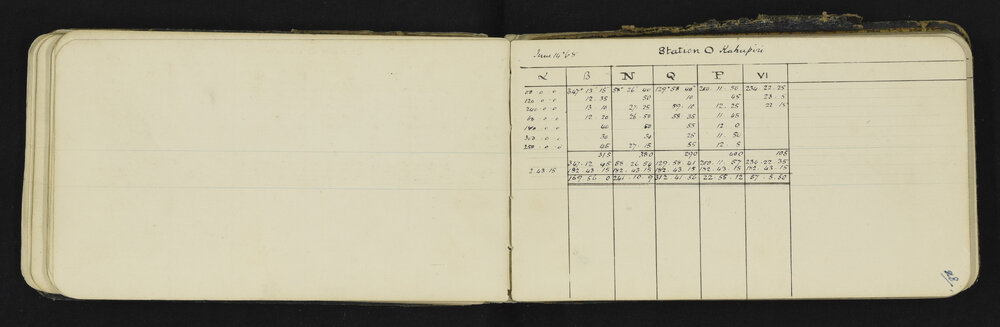 June 14 '68 Station O Kahupiri
∠ B N Q P VI
0 . 0 347° 13' 15 58° 26 . 40 129° 58 . 40" 280 . 11 . 50 234 . 22 . 25
120 . 0 . 0 12 . 35 50 10 45 23 . 5
240 . 0 . 0 13 . 10 27 . 25 59 . 10 12 . 25 22 . 15
60 . 0 . 0 12 . 20 26 . 50 58 . 35 11 . 45
180 . 0 . 0 40 60 55 12 . 0
300 . 0 . 0 30 25 11 . 50
. 0 . 0 45 27 . 15 55 12 . 5
315 380 290 400 105
347 . 12 . 45 58 . 26 . 54 129 . 58 . 41 280 . 11 . 57 234 . 22 . 35
2 . 43 . 15 182 . 43 . 15 182 . 43 . 15 182 . 43 . 15 182 . 43 . 15 182 . 43 . 15
169 . 56 . 0 241 . 10 . 9 312 . 41 . 56 22 . 55 . 12 57 . 5 . 50
28